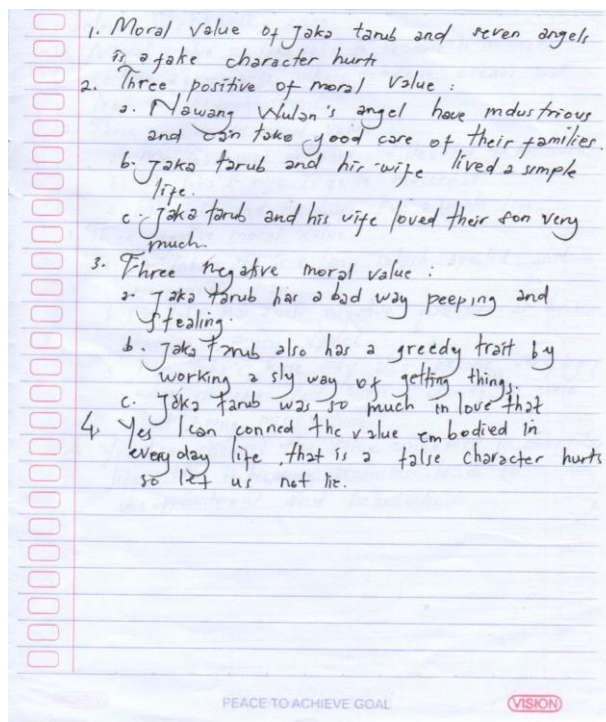 1. Moral value of Jaka tarub and seven angels
is a fake character hurts
2. Three positive of moral value :
a. Nawang Wulan's angel have industrious
and can take good care of their families.
b. Jaka tarub and his wife lived a simple
life.
c. Jaka tarub and his wife loved their son very
much.
3. Three negative moral value :
a. Jaka tarub has a bad way peeping and
stealing.
b. Jaka tarub also has a greedy trait by
working a sly way of getting things.
c. Jaka tarub was so much in love that
4. Yes I can conned the value embodied in
every day life, that is a false character hurts
so let us not lie.
PEACE TO ACHIEVE GOAL
VISION